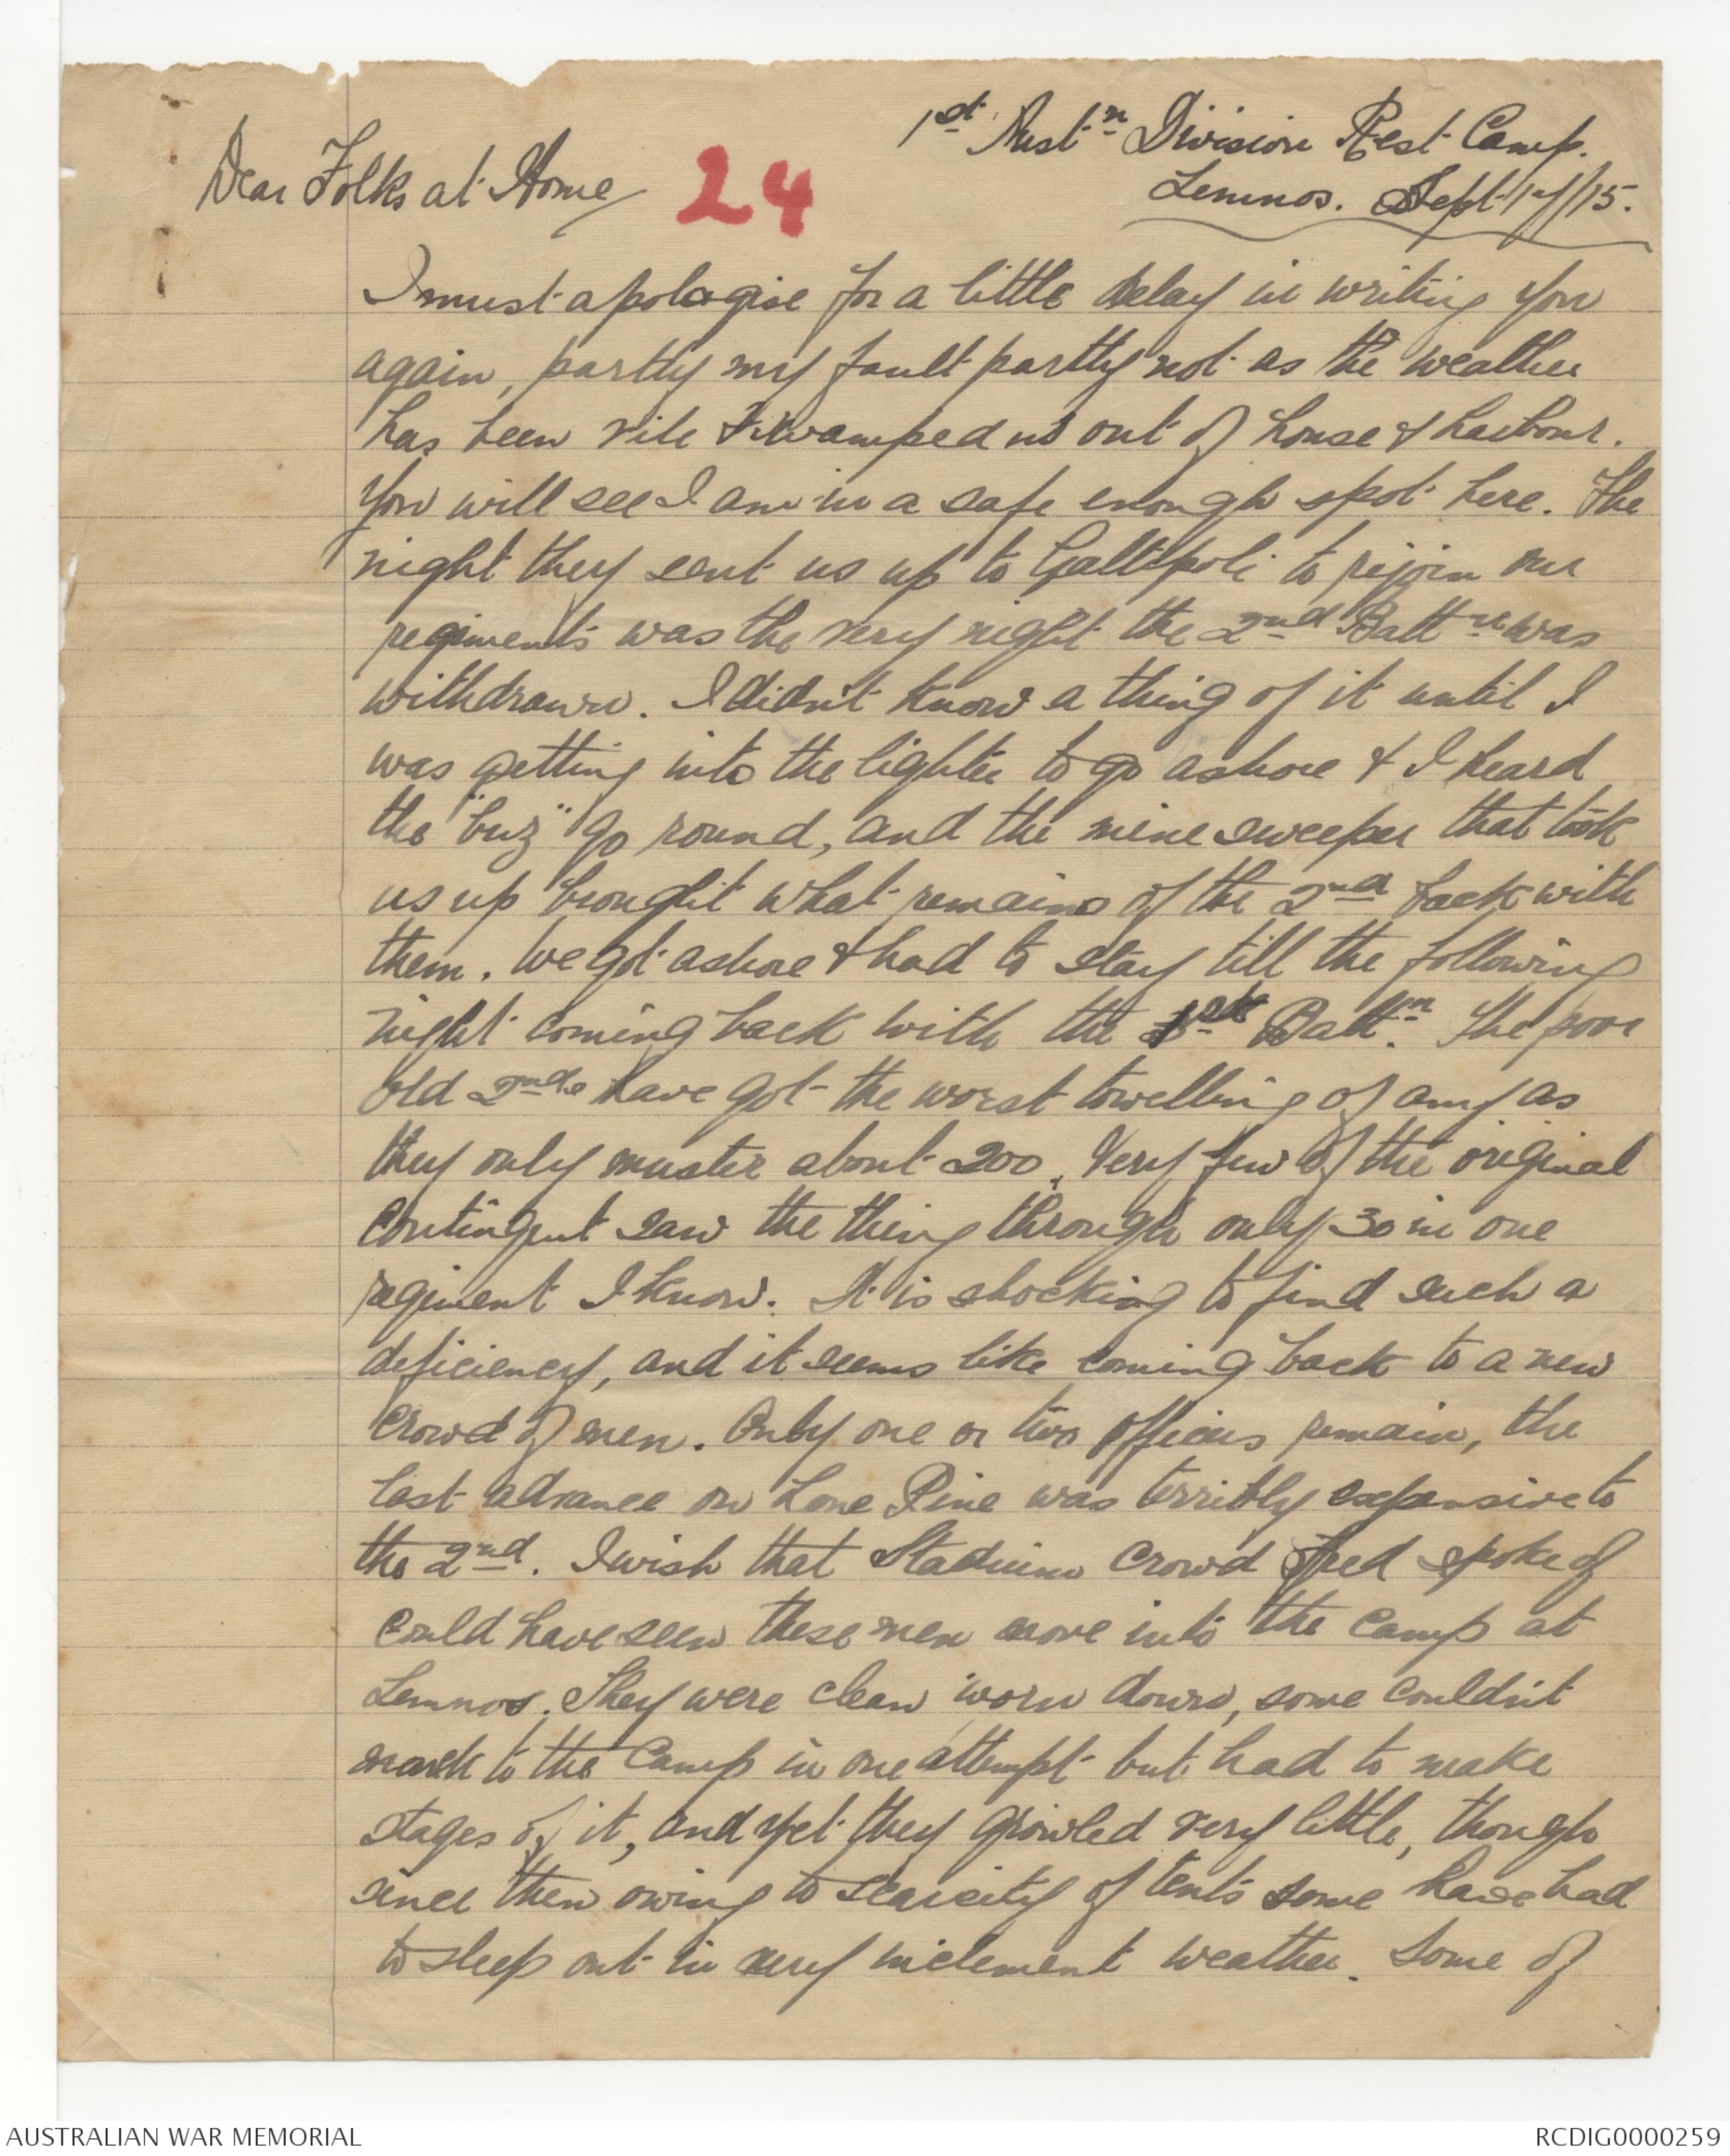 1st Austn Division Rest Camp.
Lemnos. Sept 17/15.
Dear Folks at Home
24
I must apologise for a little delay in writing you
again, partly my fault partly not as the weather
has been vile & swamped us out of house & harbour.
You will see I am in a safe enough spot here. The
night they sent us up to Gallipoli to rejoin our
regiments was the very night the 2nd Battn was
withdrawn. I didn't know a thing of it until I
was getting into the lighter to go ashore & I heard
the "buz" go round, and the mine sweeper that took
us up brought what remains of the 2nd back with
them. We got ashore & had to stay till the following
night coming back with the 1st Battn. The poor
old 2nds have got the worst towelling of any as
they only muster about 200. Very few of the original
contingent saw the thing through only 30 in one
regiment I know. It is shocking to find such a
deficiency, and it seems like coming back to a new
crowd of men. Only one or two officers remain, the
last advance on Lone Pine was terribly expensive to
the 2nd. I wish that Stadium crowd Fred spoke of
could have seen these men move into the Camp at
Lemnos. They were clean worn down, some couldn't
march to the Camp in one attempt but had to make
stages of it, and yet they growled very little, though
since then owing to scarcity of tents some have had
to sleep out in very inclement weather. Some of
AUSTRALIAN WAR MEMORIAL
RCDIG0000259